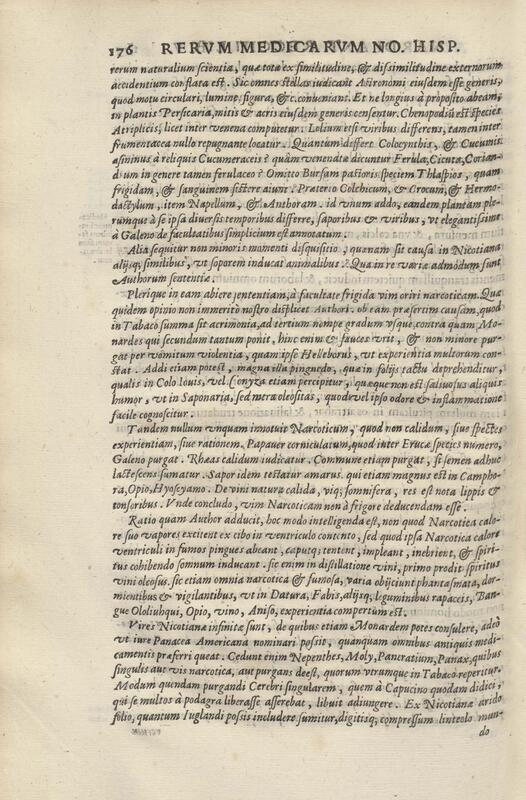 176 RERVM MEDICARVM NO. HISP.
rerum naturalium scientia, quæ tota ex similitudine, & dissimilitudine externorum
accidentium conflata est. Sic omnes stellas iudicant Astronomi eiusdem esse generis,
quod motu circulari, lumine, figura, &c. conueniant. Et ne longius à proposito abeam,
in plantis Persicaria, mitis & acris eiusdem generis censentur. Chenopodiũ est species
Atriplicis, licet inter venena computetur. Lolium etsi viribus differens, tamen inter
frumentacea nullo repugnante locatur. Quantum differt Colocynthis, & Cucumis
asininus à reliquis Cucumeraceis? quàm venenatæ dicuntur Ferulæ, Cicuta, Corian-
dium in genere tamen ferulaceo? Omitto Bursam pastoris speciem Thlaspios, quam
frigidam, & sanguinem sistere aiunt. Prætereo Colchicum, & Crocum, & Hermo-
dactylum, item Napellum, & Anthoram. id vnum addo, eandem plantam ple-
rumque à se ipsa diuersis temporibus differre, saporibus & viribus, vt elegantissimè
à Galeno de facultatibus simplicium est annotatum.
Alia sequitur non minoris momenti disquisitio, quænam sit causa in Nicotiana
alijsq; similibus, vt soporem inducat animalibus? Qua in re variæ admodum sunt
Authorum sententiæ.
Plerique in eam abiere sententiam, à facultate frigida vim oriri narcoticam. Quæ
quidem opinio non immeritò nostro displicet Authori. ob eam præsertim causam, quod
in Tabaco summa sit acrimonia, ad tertium nempe gradum vsque, contra quam Mo-
nardes qui secundum tantum ponit, hinc enim & fauces vrit, & non minore pur-
gat per vomitum violentia, quam ipse Helleborus, vt experientia multorum con-
stat. Addi etiam potest, magna illa pinguedo, quæ in folijs tactu deprehenditur,
qualis in Colo Iouis, vel Conyza etiam percipitur, quæque non est saliuosus aliquis
humor, vt in Saponaria, sed mera oleositas, quod vel ipso odore & inflammatione
facile cognoscitur.
Tandem nullum vnquam innotuit Narcoticum, quod non calidum, siue spectes
experientiam, siue rationem. Papauer corniculatum, quod inter Erucæ species numero,
Galeno purgat. Rhæas calidum iudicatur. Commune etiam purgat, si semen adhuc
lactescens sumatur. Sapor idem testatur amarus. qui etiam magnus est in Campho-
ra, Opio, Hyoscyamo. De vini natura calida, viq; somnifera, res est nota lippis &
tonsoribus. Vnde concludo, vim Narcoticam non à frigore deducendam esse.
Ratio quam Author adducit, hoc modo intelligenda est, non quod Narcotica calo-
re suo vapores excitent ex cibo in ventriculo contento, sed quod ipsa Narcotica calore
ventriculi in fumos pingues abeant, caputq; tentent, impleant, inebrient, & spiri-
tus cohibendo somnum inducant. sic enim in distillatione vini, primo prodit spiritus
vini oleosus. sic etiam omnia narcotica & fumosa, varia obijciunt phantasmata, dor-
mientibus & vigilantibus, vt in Datura, Fabis, alijsq; leguminibus rapaceis, Ban-
gue Ololiuhqui, Opio, vino, Aniso, experientia compertum est.
Vires Nicotianæ infinitæ sunt, de quibus etiam Monardem potes consulere, adeò
vt iure Panacea Americana nominari possit, quanquam omnibus antiquis medi-
camentis præferri queat. Cedunt enim Nepenthes, Moly, Pancratium, Panax, quibus
singulis aut vis narcotica, aut purgans deest, quorum vtrumque in Tabaco reperitur.
Modum quendam purgandi Cerebri singularem, quem à Capucino quodam didici,
qui se multos à podagra liberasse asserebat, libuit adiungere. Ex Nicotianæ arido
folio, quantum Iuglandi possis includere sumitur, digitisq; compressum linteolo mun-
do